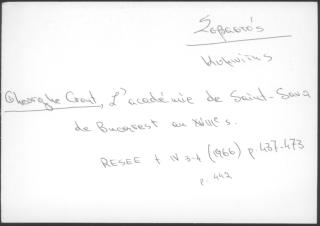 Σεβαστός
Κυμινίτης
Gheorghe Cront, L'académie de Saint-Sava
de Bucarest au XVIIIe s.
RESEE t IV 3-4 (1966) p. 437-473
p. 442